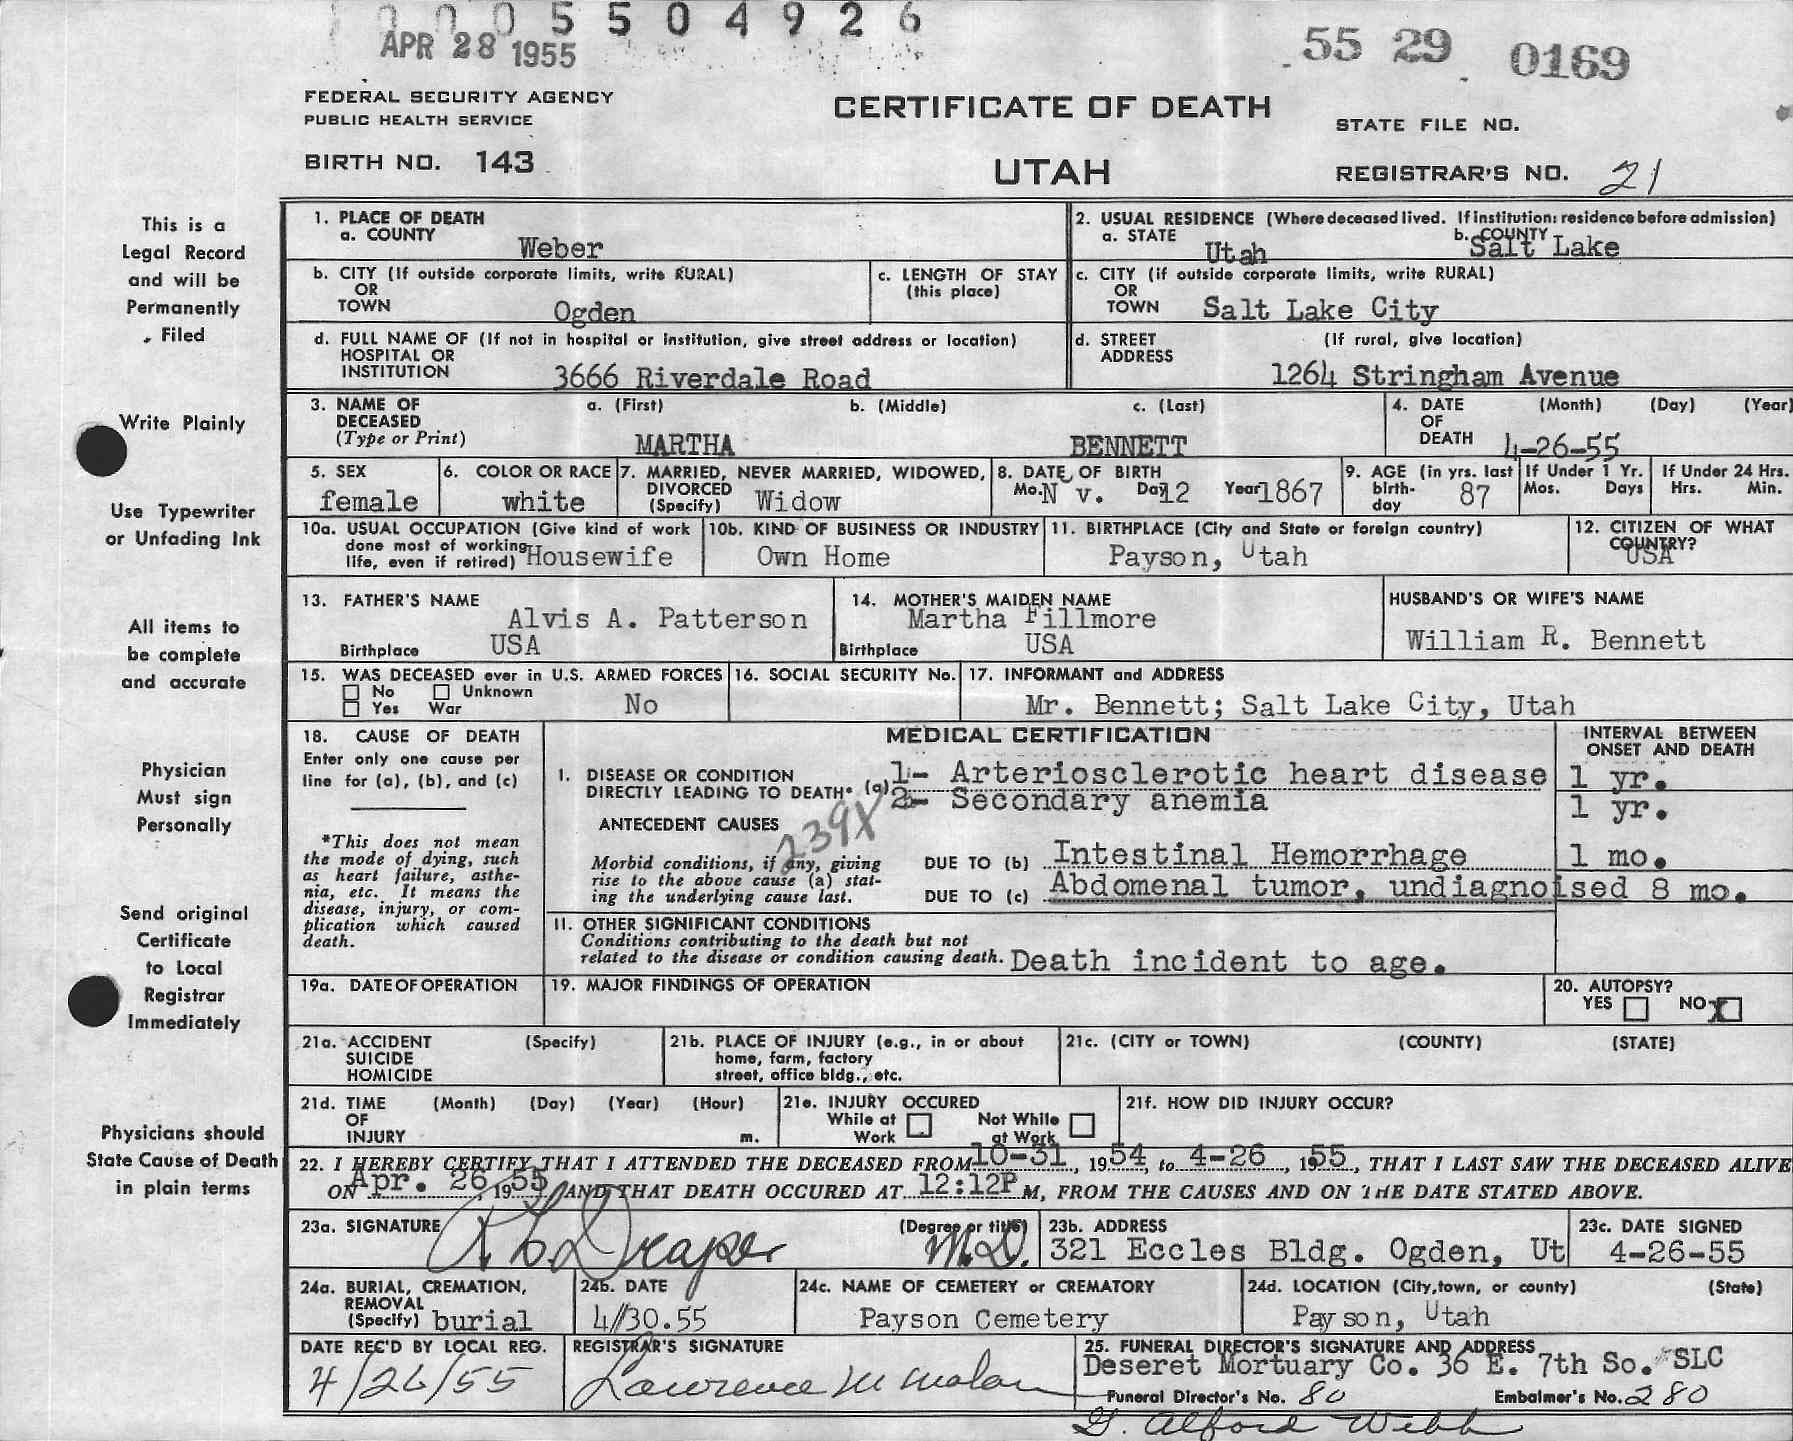 0005504926
APR 28 1955
55 29 0169
FEDERAL SECURITY AGENCY
PUBLIC HEALTH SERVICE
BIRTH NO. 143
CERTIFICATE OF DEATH
UTAH
STATE FILE NO.
REGISTRAR'S NO. 21
This is a
Legal Record
and will be
Permanently
Filed
Write Plainly
Use Typewriter
or Unfading Ink
All items to
be complete
and accurate
Physician
Must sign
Personally
Send original
Certificate
to Local
Registrar
Immediately
Physicians should
State Cause of Death
in plain terms
1. PLACE OF DEATH
a. COUNTY
Weber
2. USUAL RESIDENCE (Where deceased lived. If institution: residence before admission)
a. STATE Utah b. COUNTY Salt Lake
b. CITY (If outside corporate limits, write RURAL)
OR
TOWN Ogden
c. LENGTH OF STAY
(this place)
c. CITY (if outside corporate limits, write RURAL)
OR
TOWN Salt Lake City
d. FULL NAME OF (If not in hospital or institution, give street address or location)
HOSPITAL OR
INSTITUTION 3666 Riverdale Road
d. STREET (If rural, give location)
ADDRESS
1264 Stringham Avenue
3. NAME OF a. (First) b. (Middle) c. (Last)
DECEASED
(Type or Print) MARTHA BENNETT
4. DATE (Month) (Day) (Year)
OF
DEATH 4-26-55
5. SEX
female
6. COLOR OR RACE
white
7. MARRIED, NEVER MARRIED, WIDOWED,
DIVORCED
(Specify) Widow
8. DATE OF BIRTH
Mo. N v. Day 12 Year 1867
9. AGE (in yrs. last
birth-
day 87
If Under 1 Yr.
Mos. Days
If Under 24 Hrs.
Hrs. Min.
10a. USUAL OCCUPATION (Give kind of work
done most of working
life, even if retired) Housewife
10b. KIND OF BUSINESS OR INDUSTRY
Own Home
11. BIRTHPLACE (City and State or foreign country)
Payson, Utah
12. CITIZEN OF WHAT
COUNTRY?
USA
13. FATHER'S NAME
Alvis A. Patterson
Birthplace USA
14. MOTHER'S MAIDEN NAME
Martha Fillmore
Birthplace USA
HUSBAND'S OR WIFE'S NAME
William R. Bennett
15. WAS DECEASED ever in U.S. ARMED FORCES
No Unknown
Yes War No
16. SOCIAL SECURITY No.
17. INFORMANT and ADDRESS
Mr. Bennett; Salt Lake City, Utah
18. CAUSE OF DEATH
Enter only one cause per
line for (a), (b), and (c)
*This does not mean
the mode of dying, such
as heart failure, asthe-
nia, etc. It means the
disease, injury, or com-
plication which caused
death.
MEDICAL CERTIFICATION
INTERVAL BETWEEN
ONSET AND DEATH
I. DISEASE OR CONDITION
DIRECTLY LEADING TO DEATH* (a) 1- Arteriosclerotic heart disease 1 yr.
2- Secondary anemia 1 yr.
ANTECEDENT CAUSES
239X
Morbid conditions, if any, giving
rise to the above cause (a) stat-
ing the underlying cause last.
DUE TO (b) Intestinal Hemorrhage 1 mo.
DUE TO (c) Abdomenal tumor, undiagnoised 8 mo.
II. OTHER SIGNIFICANT CONDITIONS
Conditions contributing to the death but not
related to the disease or condition causing death. Death incident to age.
19a. DATE OF OPERATION
19. MAJOR FINDINGS OF OPERATION
20. AUTOPSY?
YES NO X
21a. ACCIDENT (Specify)
SUICIDE
HOMICIDE
21b. PLACE OF INJURY (e.g., in or about
home, farm, factory
street, office bldg., etc.
21c. (CITY or TOWN) (COUNTY) (STATE)
21d. TIME (Month) (Day) (Year) (Hour)
OF
INJURY m.
21e. INJURY OCCURED
While at Not While
Work at Work
21f. HOW DID INJURY OCCUR?
22. I HEREBY CERTIFY THAT I ATTENDED THE DECEASED FROM 10-31, 1954, to 4-26, 1955, THAT I LAST SAW THE DECEASED ALIVE
ON Apr. 26, 1955 AND THAT DEATH OCCURED AT 12:12P M, FROM THE CAUSES AND ON THE DATE STATED ABOVE.
23a. SIGNATURE Draper (Degree or title) M.D.
23b. ADDRESS
321 Eccles Bldg. Ogden, Ut
23c. DATE SIGNED
4-26-55
24a. BURIAL, CREMATION,
REMOVAL
(Specify) burial
24b. DATE
4/30.55
24c. NAME OF CEMETERY or CREMATORY
Payson Cemetery
24d. LOCATION (City, town, or county) (State)
Payson, Utah
DATE REC'D BY LOCAL REG.
4/26/55
REGISTRAR'S SIGNATURE
Lawrence M Malan
25. FUNERAL DIRECTOR'S SIGNATURE AND ADDRESS
Deseret Mortuary Co. 36 E. 7th So. SLC
Funeral Director's No. 80 Embalmer's No. 280
G. Alford Webb